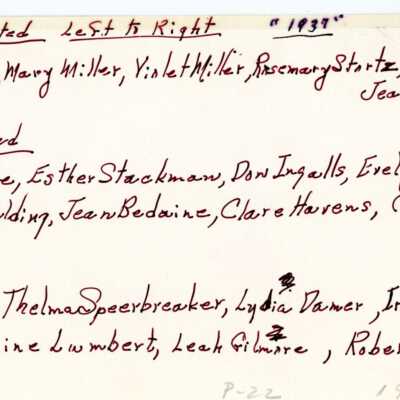 ted Left to Right "1937"
Mary Miller, Violet Miller, Rosemary Stortz,
Jea
ed
e, Esther Stackman, Don Ingalls, Evel
lding, Jean Bedaine, Clare Havens, C
Thelma Speerbreaker, Lydia Damer, Ir
ine Lumbert, Leah Gilmore, Rober
P-22 19